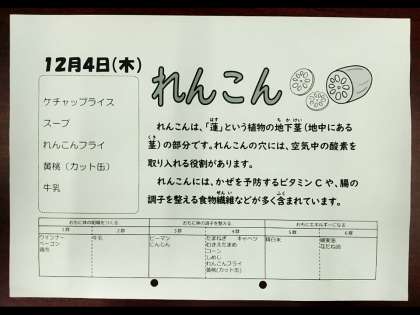 12月4日(木)
れんこん
ケチャップライス
スープ
れんこんフライ
黄桃（カット缶）
牛乳
れんこんは、「蓮」という植物の地下茎（地中にある
茎）の部分です。れんこんの穴には、空気中の酸素を
取り入れる役割があります。
れんこんには、かぜを予防するビタミンCや、腸の
調子を整える食物繊維などが多く含まれています。
おもに体の組織をつくる おもに体の調子を整える おもにエネルギーになる
1群 2群 3群 4群 5群 6群
ウィンナー 牛乳 ピーマン たまねぎ キャベツ 精白米
ベーコン にんじん むきえだまめ 菜種油
鶏肉 コーン
しめじ
れんこんフライ
黄桃(カット缶)